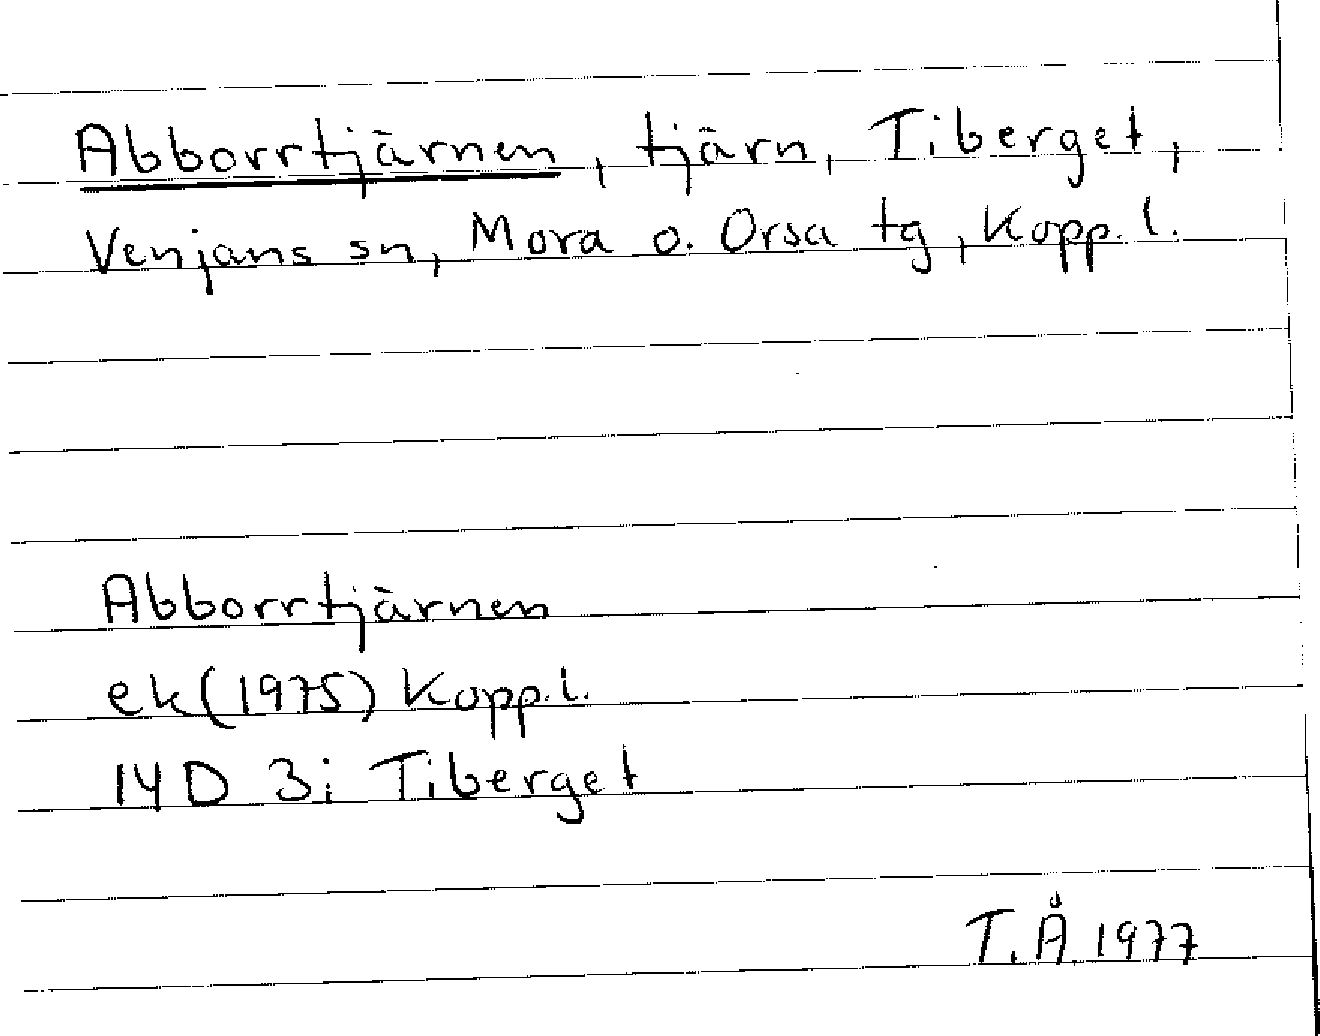 Abborrtjärnen, tjärn, Tiberget,
Venjans sn, Mora o. Orsa tg, Kopp. l.
Abborrtjärnen
ek (1975) Kopp. l.
14 D 3i Tiberget
T. Å. 1977